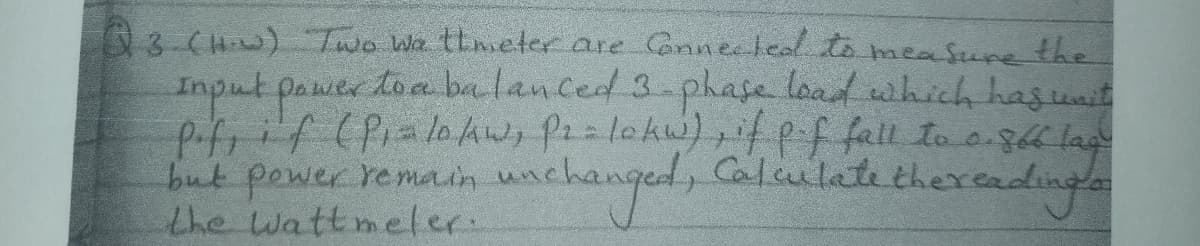 Q3-(H.w) Two Wattmeter are Connected to measure the
Input power to a balanced 3-phase load which has unit
p.f, if (P1=10kw, P2=10kw), if p.f fall to 0.866 lag
but power remain unchanged, Calculate the reading of
the Wattmeter.